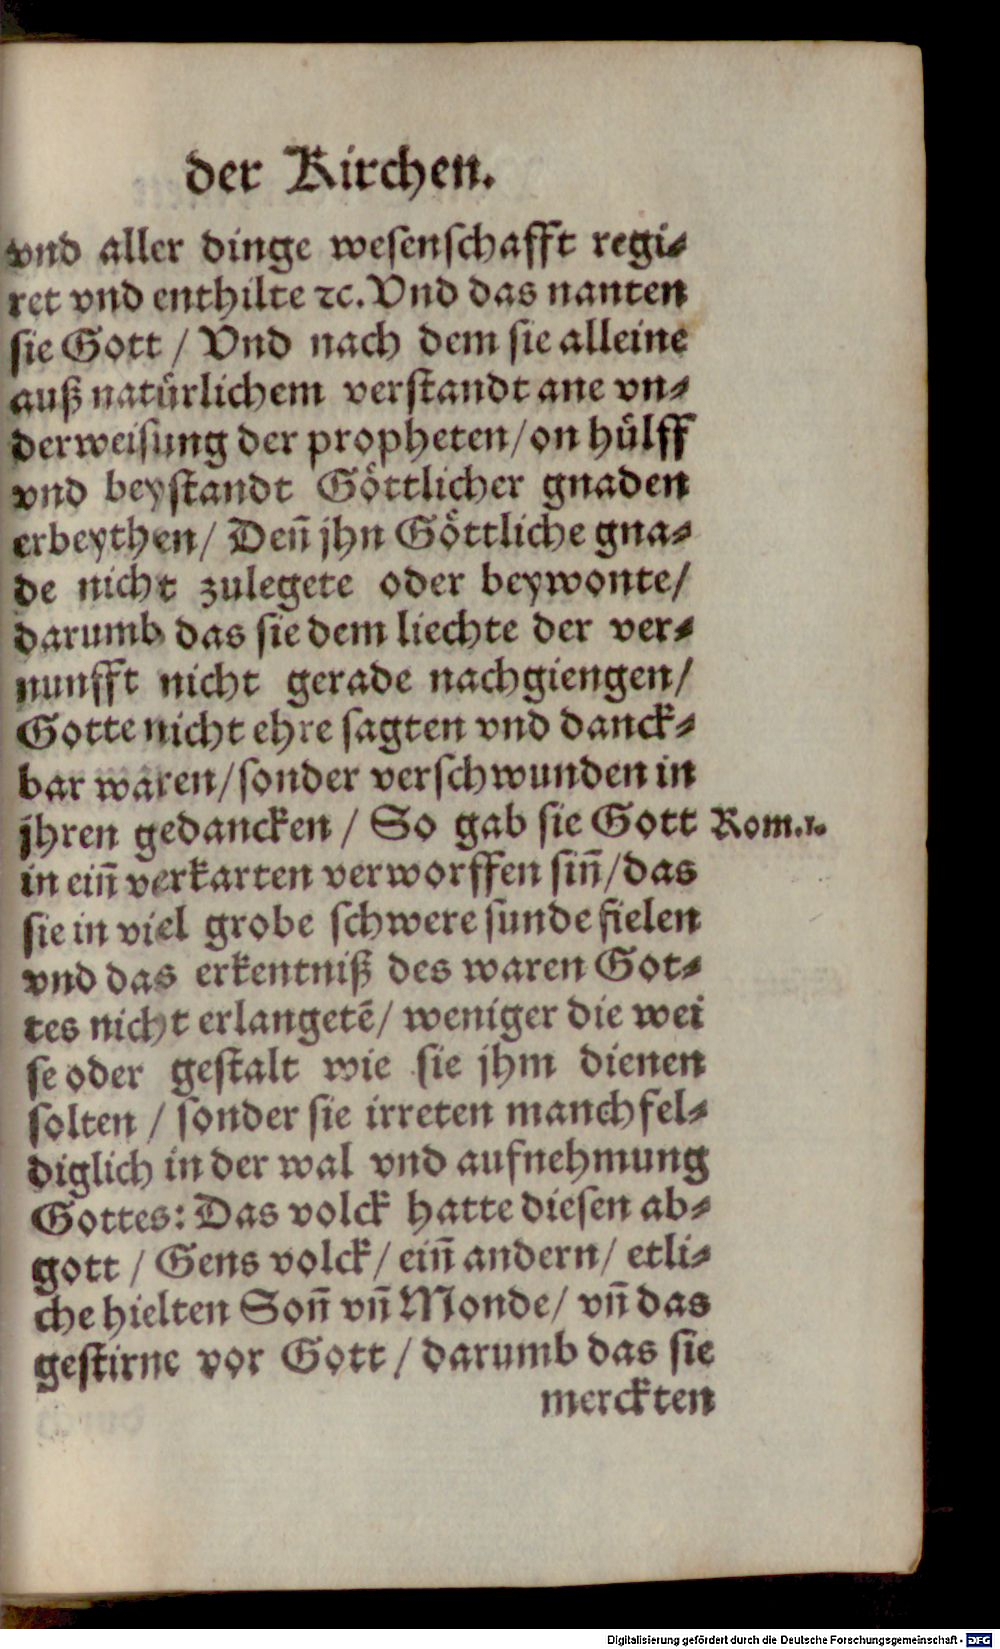 der Kirchen.
vnd aller dinge wesenschafft regi⸗
ret vnd enthilte ꝛc. Vnd das nanten
sie Gott / Vnd nach dem sie alleine
auß natürlichem verstandt ane vn⸗
derweisung der propheten/ on hülff
vnd beystandt Göttlicher gnaden
erbeythen/ Deñ jhn Göttliche gna⸗
de nicht zulegete oder beywonte/
darumb das sie dem liechte der ver⸗
nunfft nicht gerade nachgiengen/
Gotte nicht ehre sagten vnd danck⸗
bar waren/ sonder verschwunden in
jhren gedancken / So gab sie Gott Rom.1.
in eiñ verkarten verworffen siñ/ das
sie in viel grobe schwere sunde fielen
vnd das erkentniß des waren Got⸗
tes nicht erlangetē/ weniger die wei
se oder gestalt wie sie jhm dienen
solten / sonder sie irreten manchfel⸗
diglich in der wal vnd aufnehmung
Gottes: Das volck hatte diesen ab⸗
gott / Gens volck/ eiñ andern/ etli⸗
che hielten Soñ vñ Monde/ vñ das
gestirne vor Gott / darumb das sie
merckten
Digitalisierung gefördert durch die Deutsche Forschungsgemeinschaft - DFG